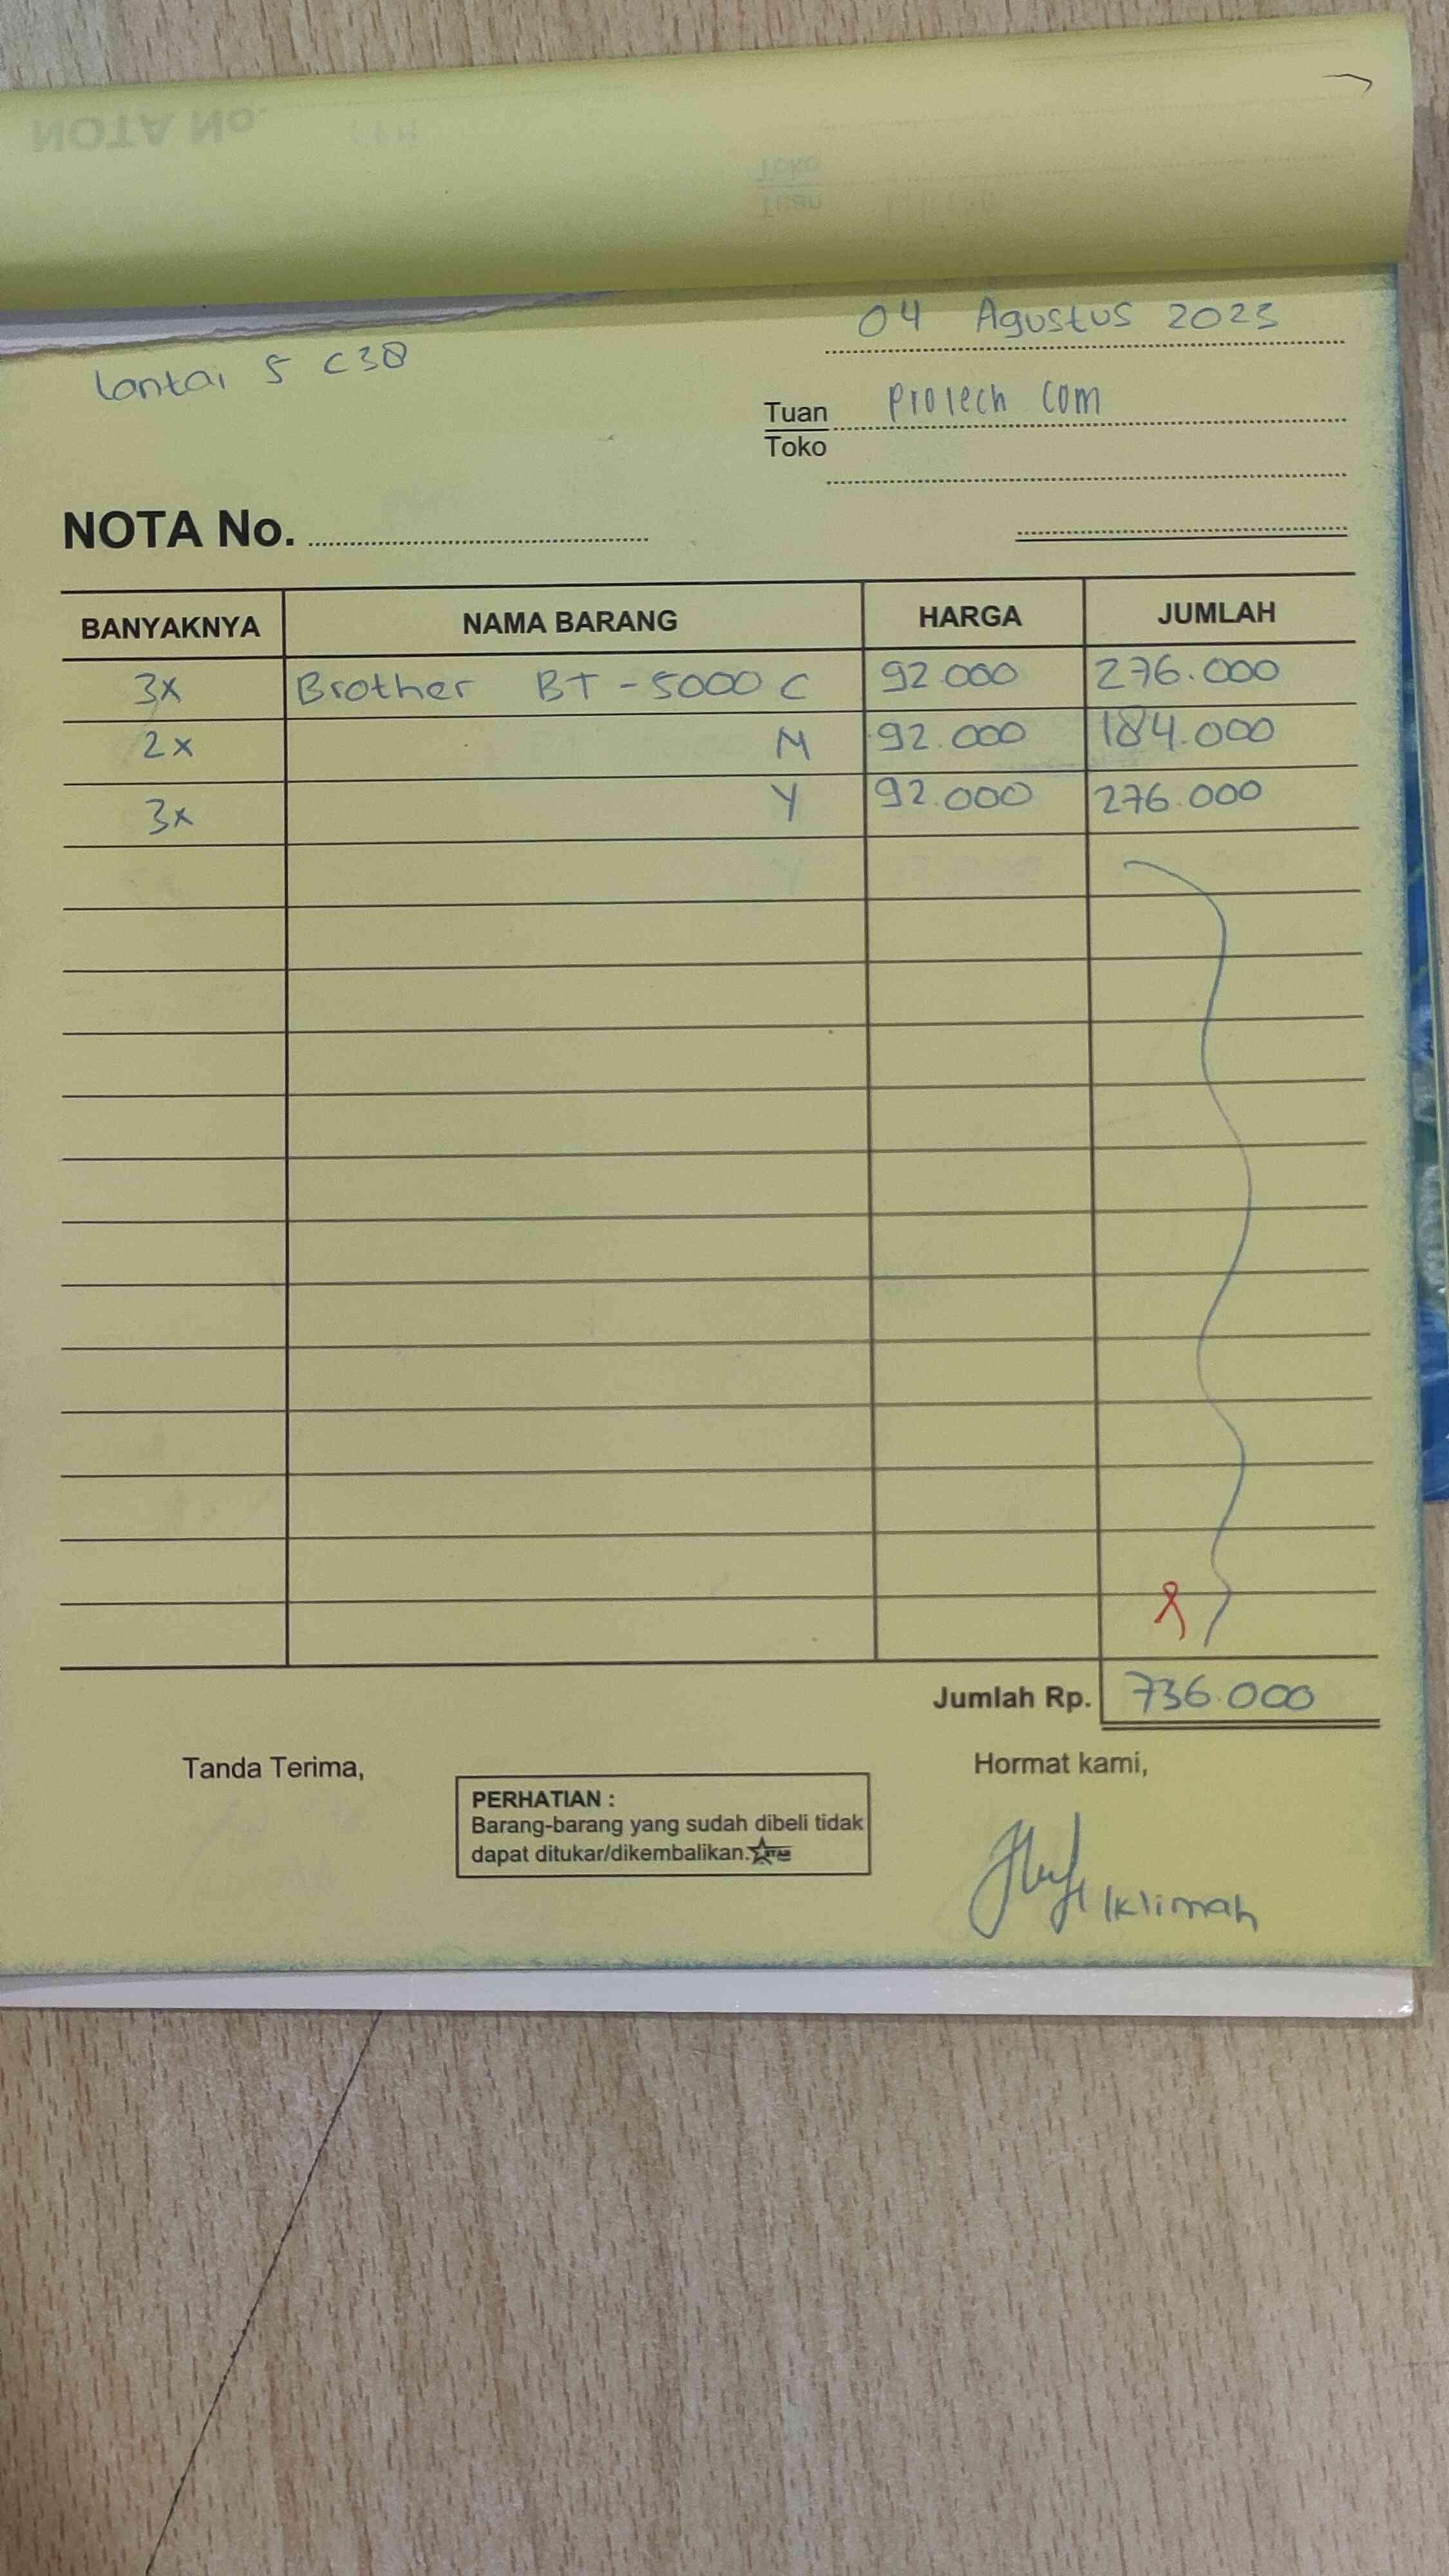 04 Agustus 2023
Lantai 5 C38
Tuan Protech Com
Toko
NOTA No.
BANYAKNYA NAMA BARANG HARGA JUMLAH
3x Brother BT-5000 C 92.000 276.000
2x M 92.000 184.000
3x Y 92.000 276.000
Jumlah Rp. 736.000
Tanda Terima,
Hormat kami,
PERHATIAN :
Barang-barang yang sudah dibeli tidak
dapat ditukar/dikembalikan.
Iklimah